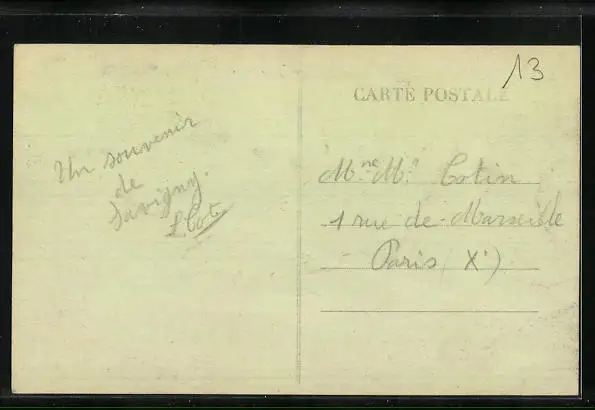 Un souvenir
de
Savigny.
CARTE POSTALE
13
Mme M. Cotin
1 rue de Marseille
Paris, Xe)